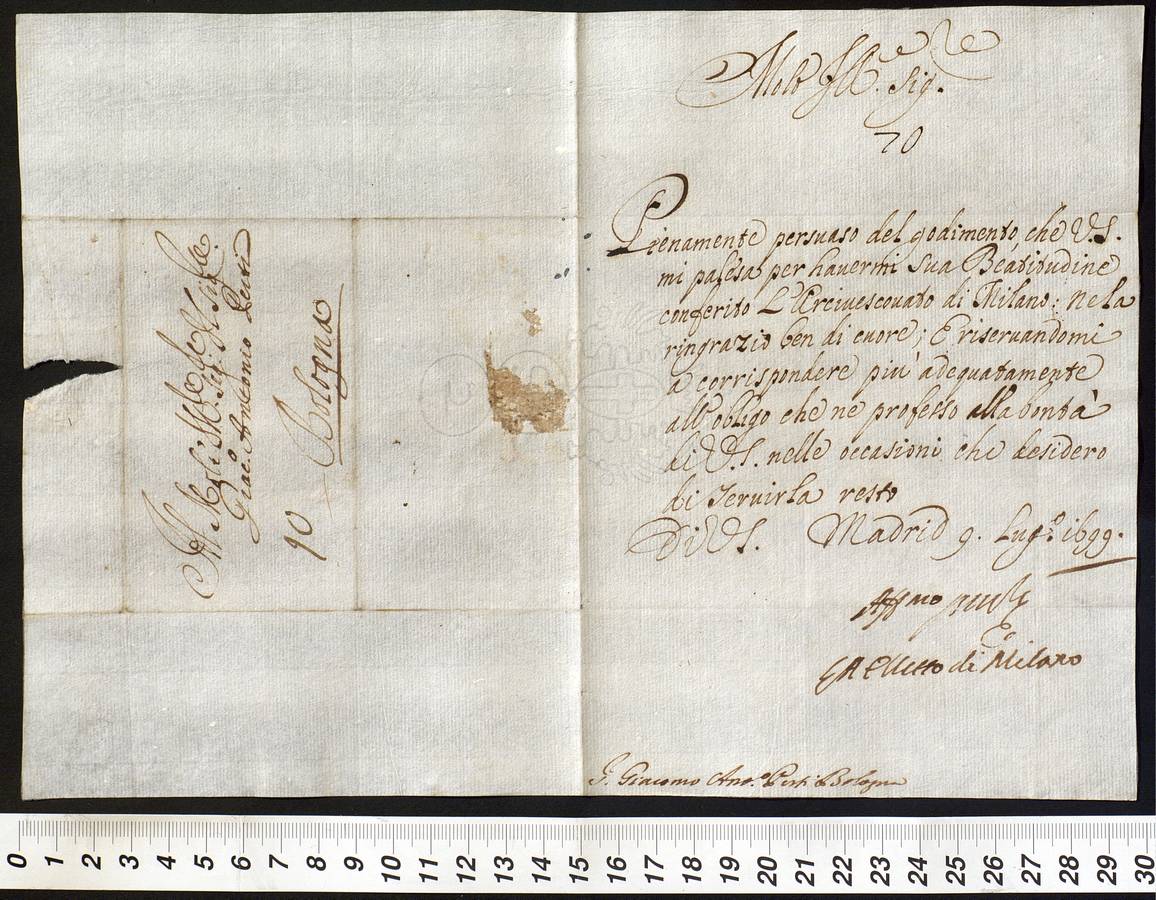 Molto Ill.re Sig.re
Pienamente persuaso del godimento, che V.S.
mi palesa per havermi Sua Beatitudine
conferito L'Arcivescovato di Milano; Ne la
ringrazio ben di cuore; E riservandomi
a corrispondere più adequatamente
all'obligo che ne professo alla bontà
di V.S. nelle occasioni che desidero
di servirla resto
Di V.S. Madrid 9. Lug.o 1699.
Aff.mo
eletto di Milano
S. Giacomo Ant.o Perti Bologna
Al Molto Ill.re Sig.re
Giac. Antonio Perti
Bologna
0 1 2 3 4 5 6 7 8 9 10 11 12 13 14 15 16 17 18 19 20 21 22 23 24 25 26 27 28 29 30